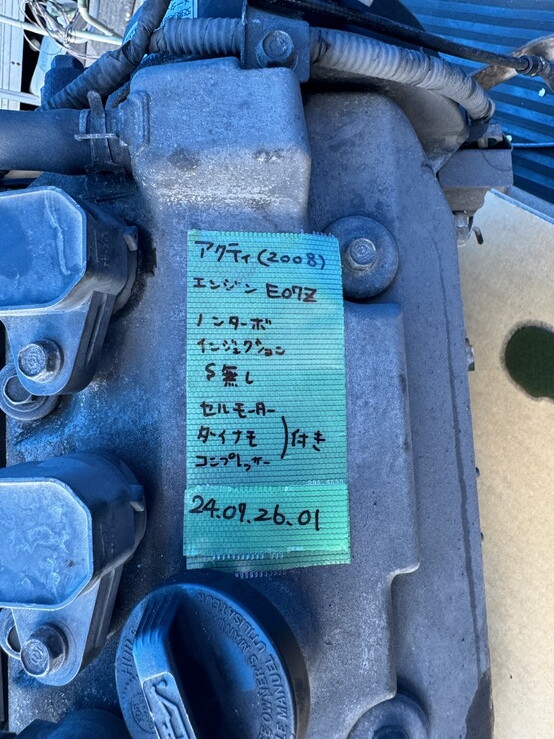 アクティ(2008)
エンジン E07Z
ノンターボ
インジェクション
S無し
セルモーター
ダイナモ
コンプレッサー
付き
24.07.26.01